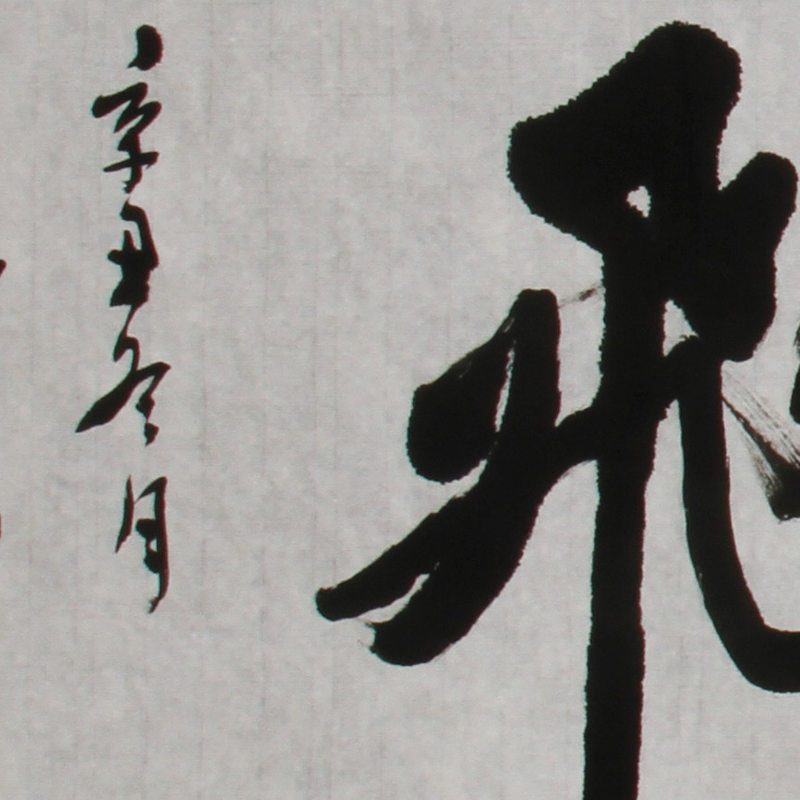 飛
辛丑冬月